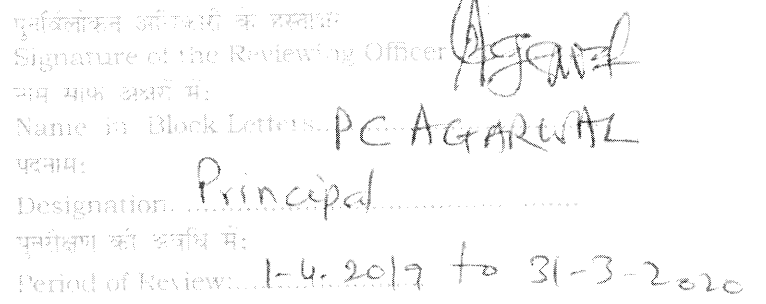 पुनर्विलोकन अधिकारी के हस्ताक्षर
Signature of the Reviewing Officer Agarwal
नाम साफ अक्षरों में:
Name in Block Letters.............. PC AGARWAL
पदनाम:
Designation. Principal .......................................
पुनरीक्षण की अवधि में:
Period of Review:.................. 1-4.2019 to 31-3-2020